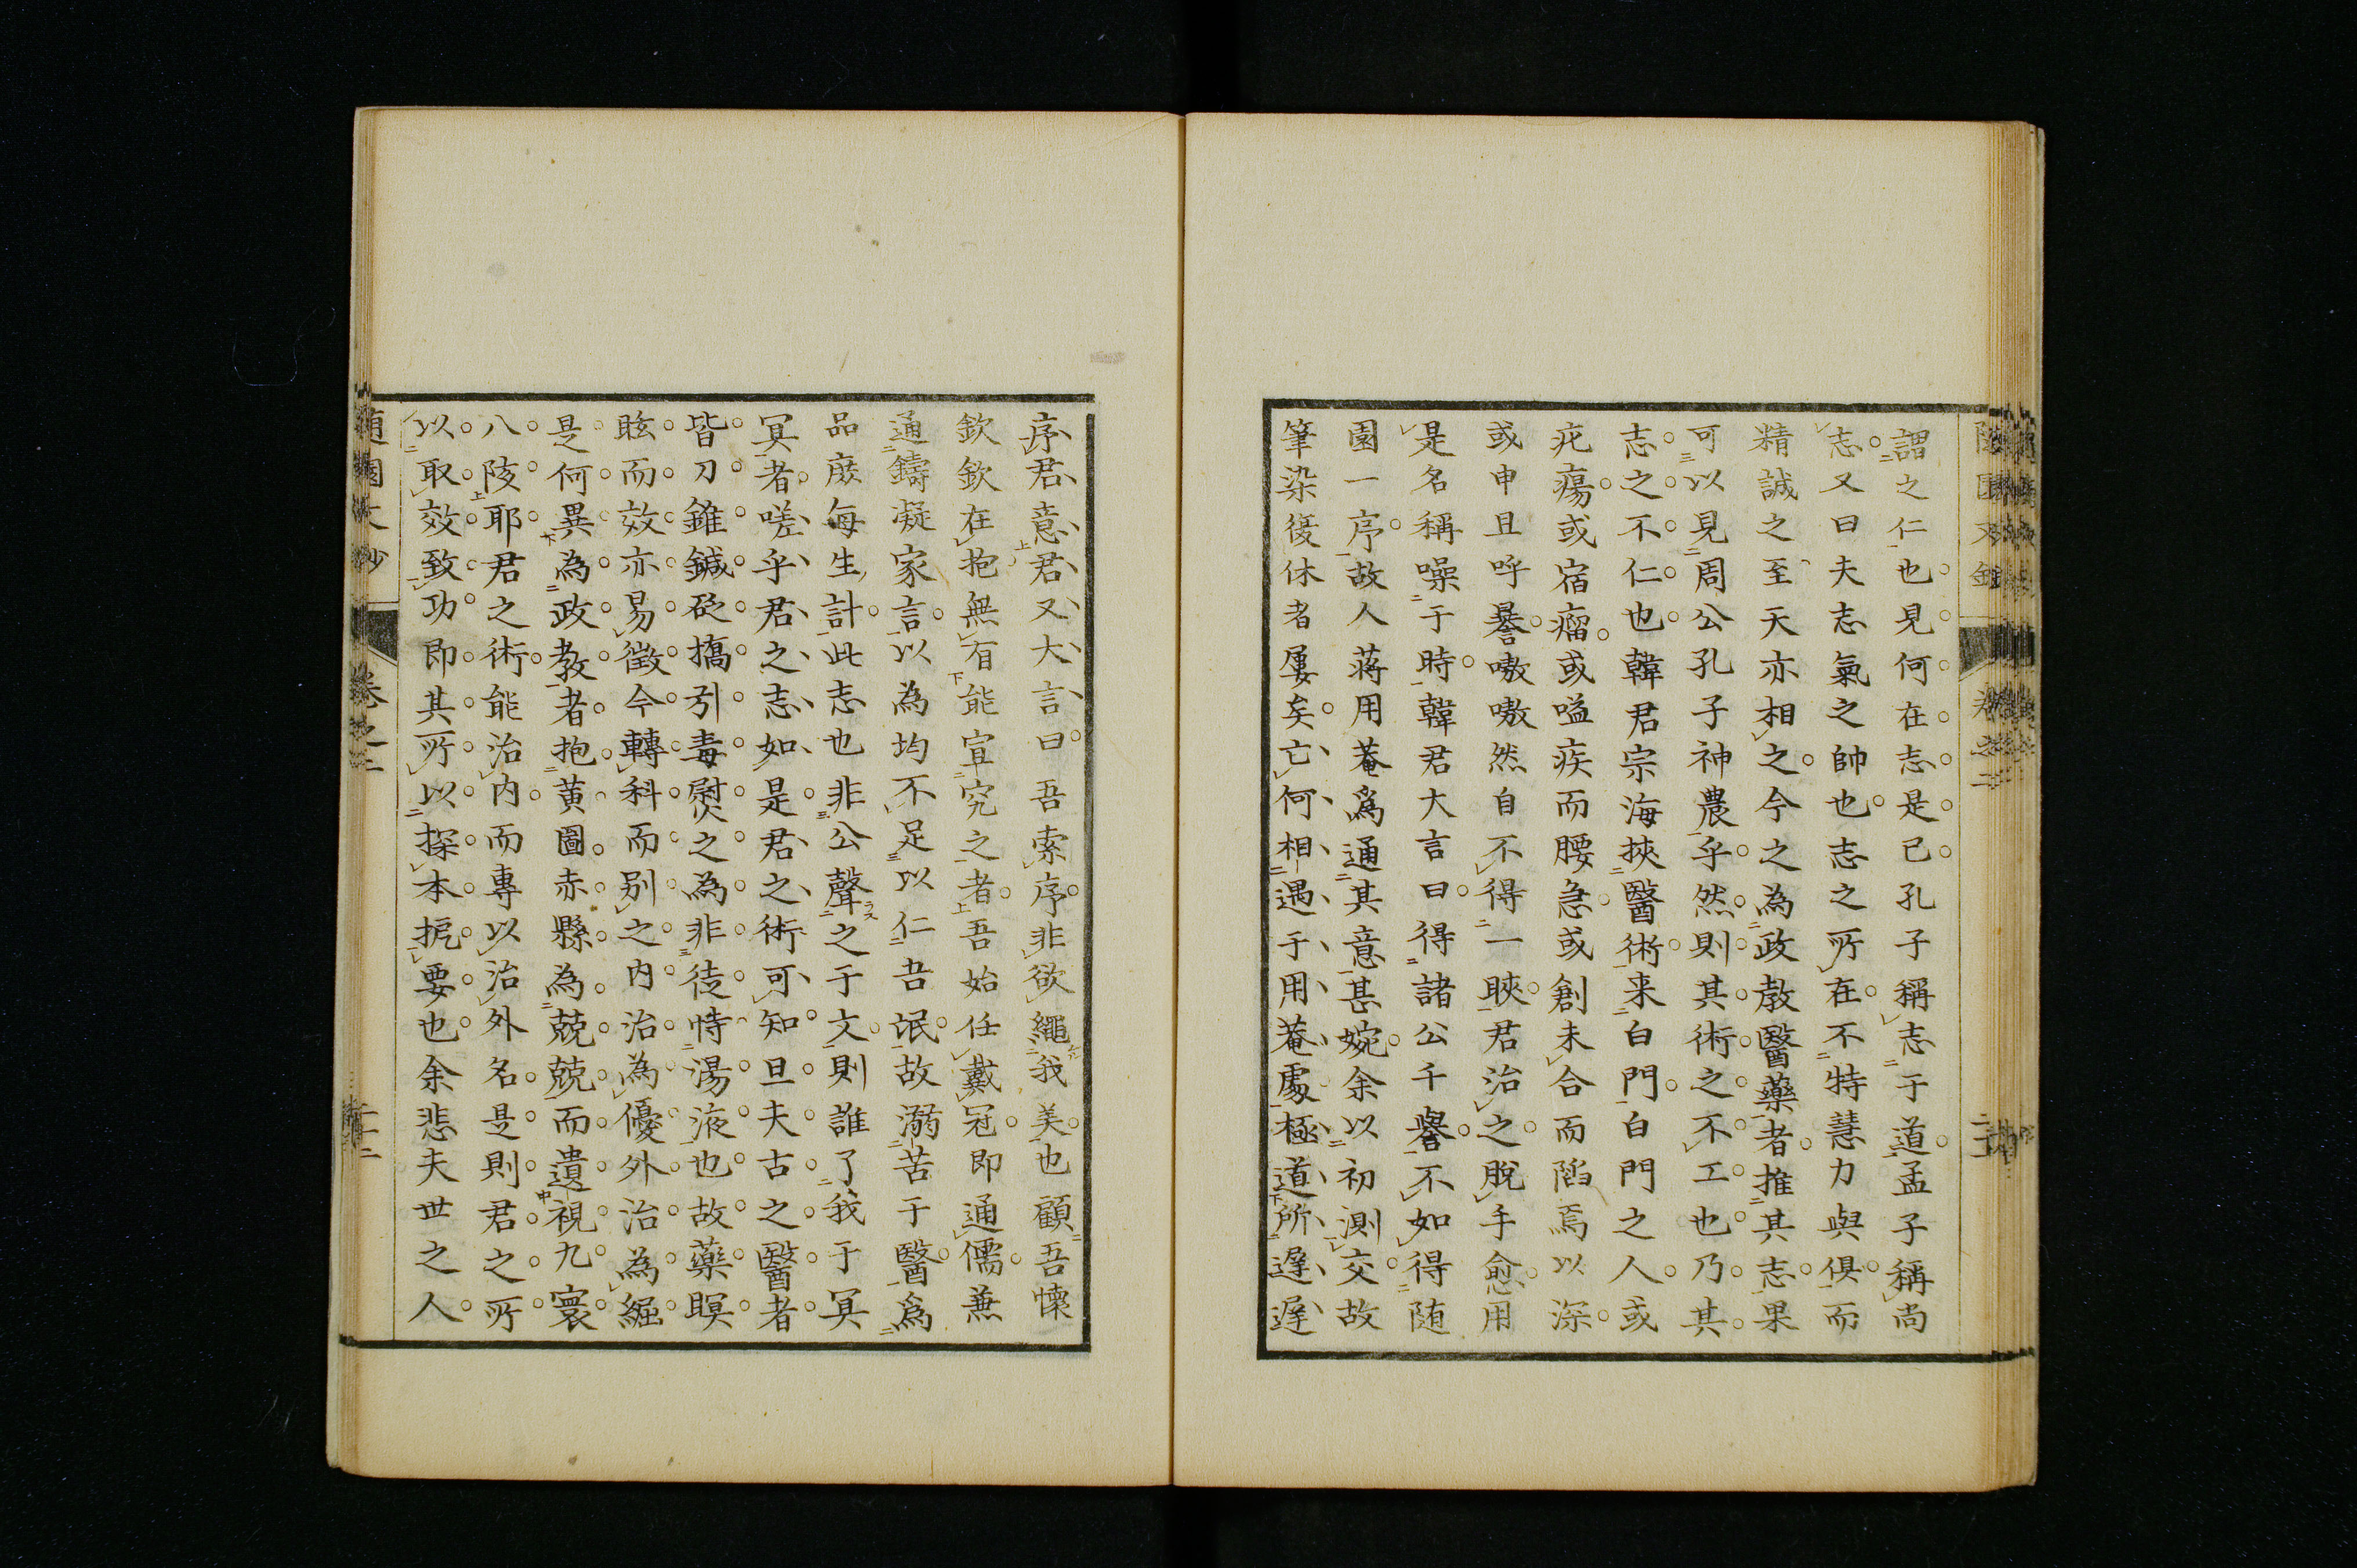 謂之仁也見何在志是已孔子稱志于道孟子稱尚
志又曰夫志氣之帥也志之所在不特慧力與俱而
精誠之至天亦相之今之為政教醫藥者推其志果
可以見周公孔子神農乎然則其術之不工也乃其
志之不仁也韓君宗海挾醫術来白門白門之人或
疕瘍或宿瘤或嗌疾而腰急或創未合而陷焉以深
或申且呼謈嗷嗷然自不得一睞君治之脫手愈用
是名稱噪于時韓君大言曰得諸公千譽不如得随
園一序故人蔣用菴爲通其意甚婉余以初測交故
筆染復休者屢矣亡何相遇于用菴處極道所遲遲
序君意君又大言曰吾索序非欲繩我美也顧吾懷
欽欽在抱無有能宣究之者吾始任戴冠即通儒兼
通鑄凝家言以為均不足以仁吾氓故溺苦于醫爲
品庶每生計此志也非公聲之于文則誰了我于冥
冥者嗟乎君之志如是君之術可知且夫古之醫者
皆刀錐鍼砭撟引毒熨之為非徒恃湯液也故藥瞑
眩而效亦易徵今轉科而别之内治為優外治為絀
是何異為政教者抱黃圖赤縣為兢兢而遺視九寰
八陔耶君之術能治内而專以治外名是則君之所
以取效致功即其所以探本扼要也余悲夫世之人
随園文鈔 卷之二 二十二